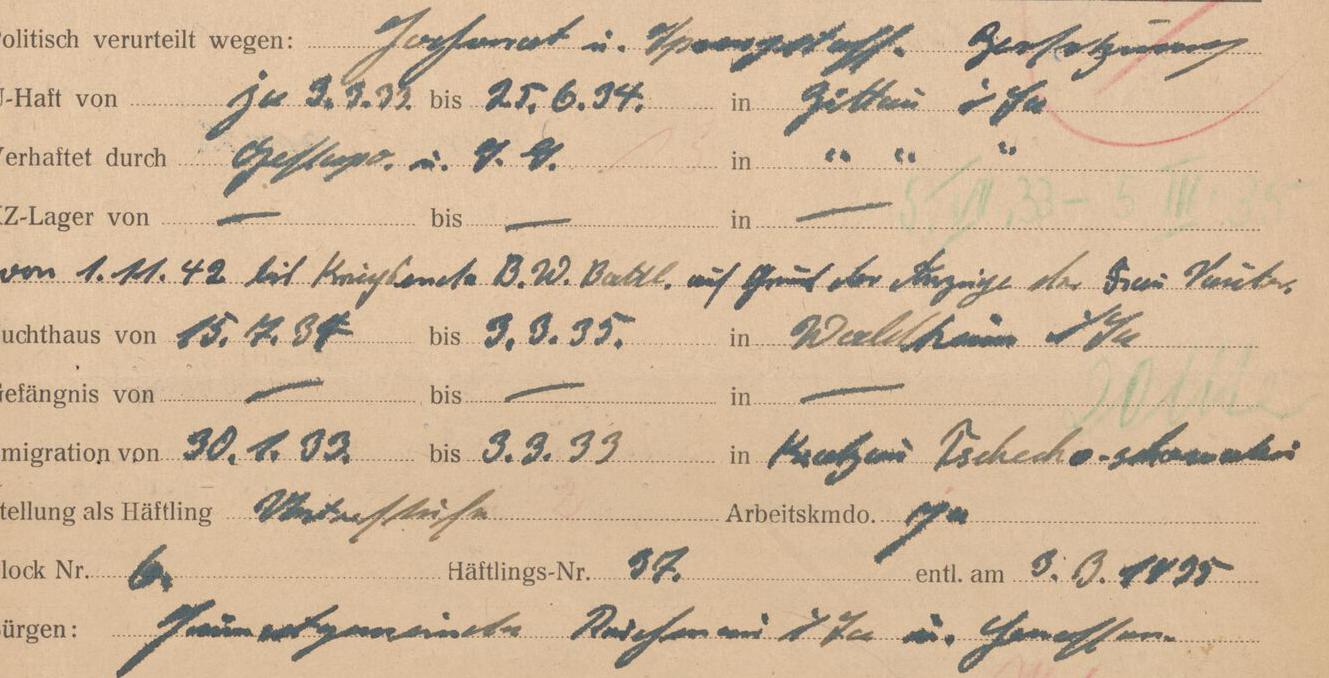 olitisch verurteilt wegen: Hochverrat u. Sprengstoff. Zersetzung
J-Haft von ja 3.3.33. bis 25.6.34. in Zittau i/Sa
Verhaftet durch Gestapo. u. S.S. in " " "
KZ-Lager von — bis — in — 5 VII.33 - 5 III.35
von 1.11.42 bis Kriegsende B.W. Battl. auf Grund der Anzeige der Frau
uchthaus von 15.7.34 bis 3.3.35. in Waldheim i/Sa
efängnis von — bis — in —
migration von 30.1.33. bis 3.3.33 in Kratzau Tschecho-slowakei
tellung als Häftling Arbeitskmdo. ja
lock Nr. 6. Häftlings-Nr. 37. entl. am 3.3.1935
ürgen: Reichenau i/Sa u. Genossen.